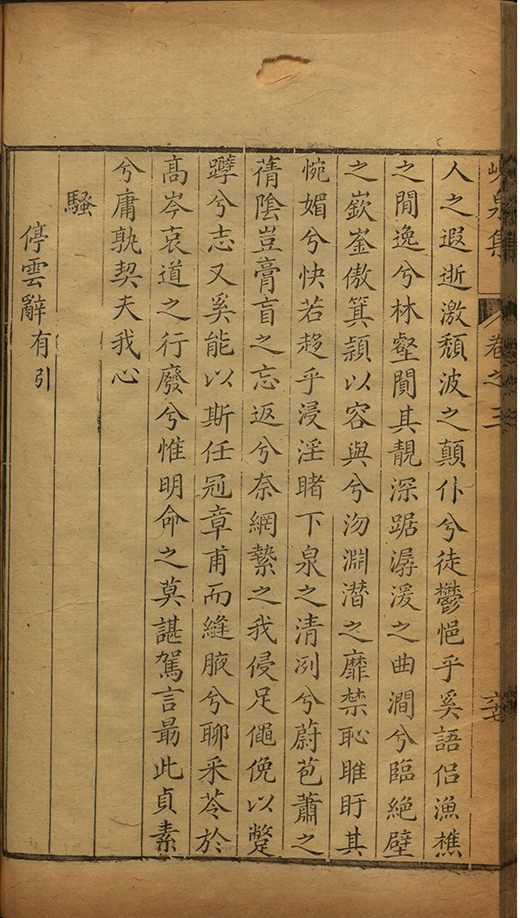 泉集
卷之三
人之遐逝激頹波之顛仆兮徒鬱悒乎奚語侶漁樵
之閒逸兮林壑闃其靚深踞潺湲之曲澗兮臨絶壁
之嶔崟傲箕潁以容與兮沕淵潜之靡禁恥睢盱其
惋媚兮快若趍乎浸淫睹下泉之清冽兮蔚苞蕭之
蒨陰豈膏肓之忘返兮奈網縶之我侵足僶俛以蹩
躠兮志又奚能以斯任冠章甫而縫腋兮聊采苓於
高岑哀道之行廢兮惟明命之莫諶駕言最此貞素
兮庸孰契夫我心
騷
停雲辭有引